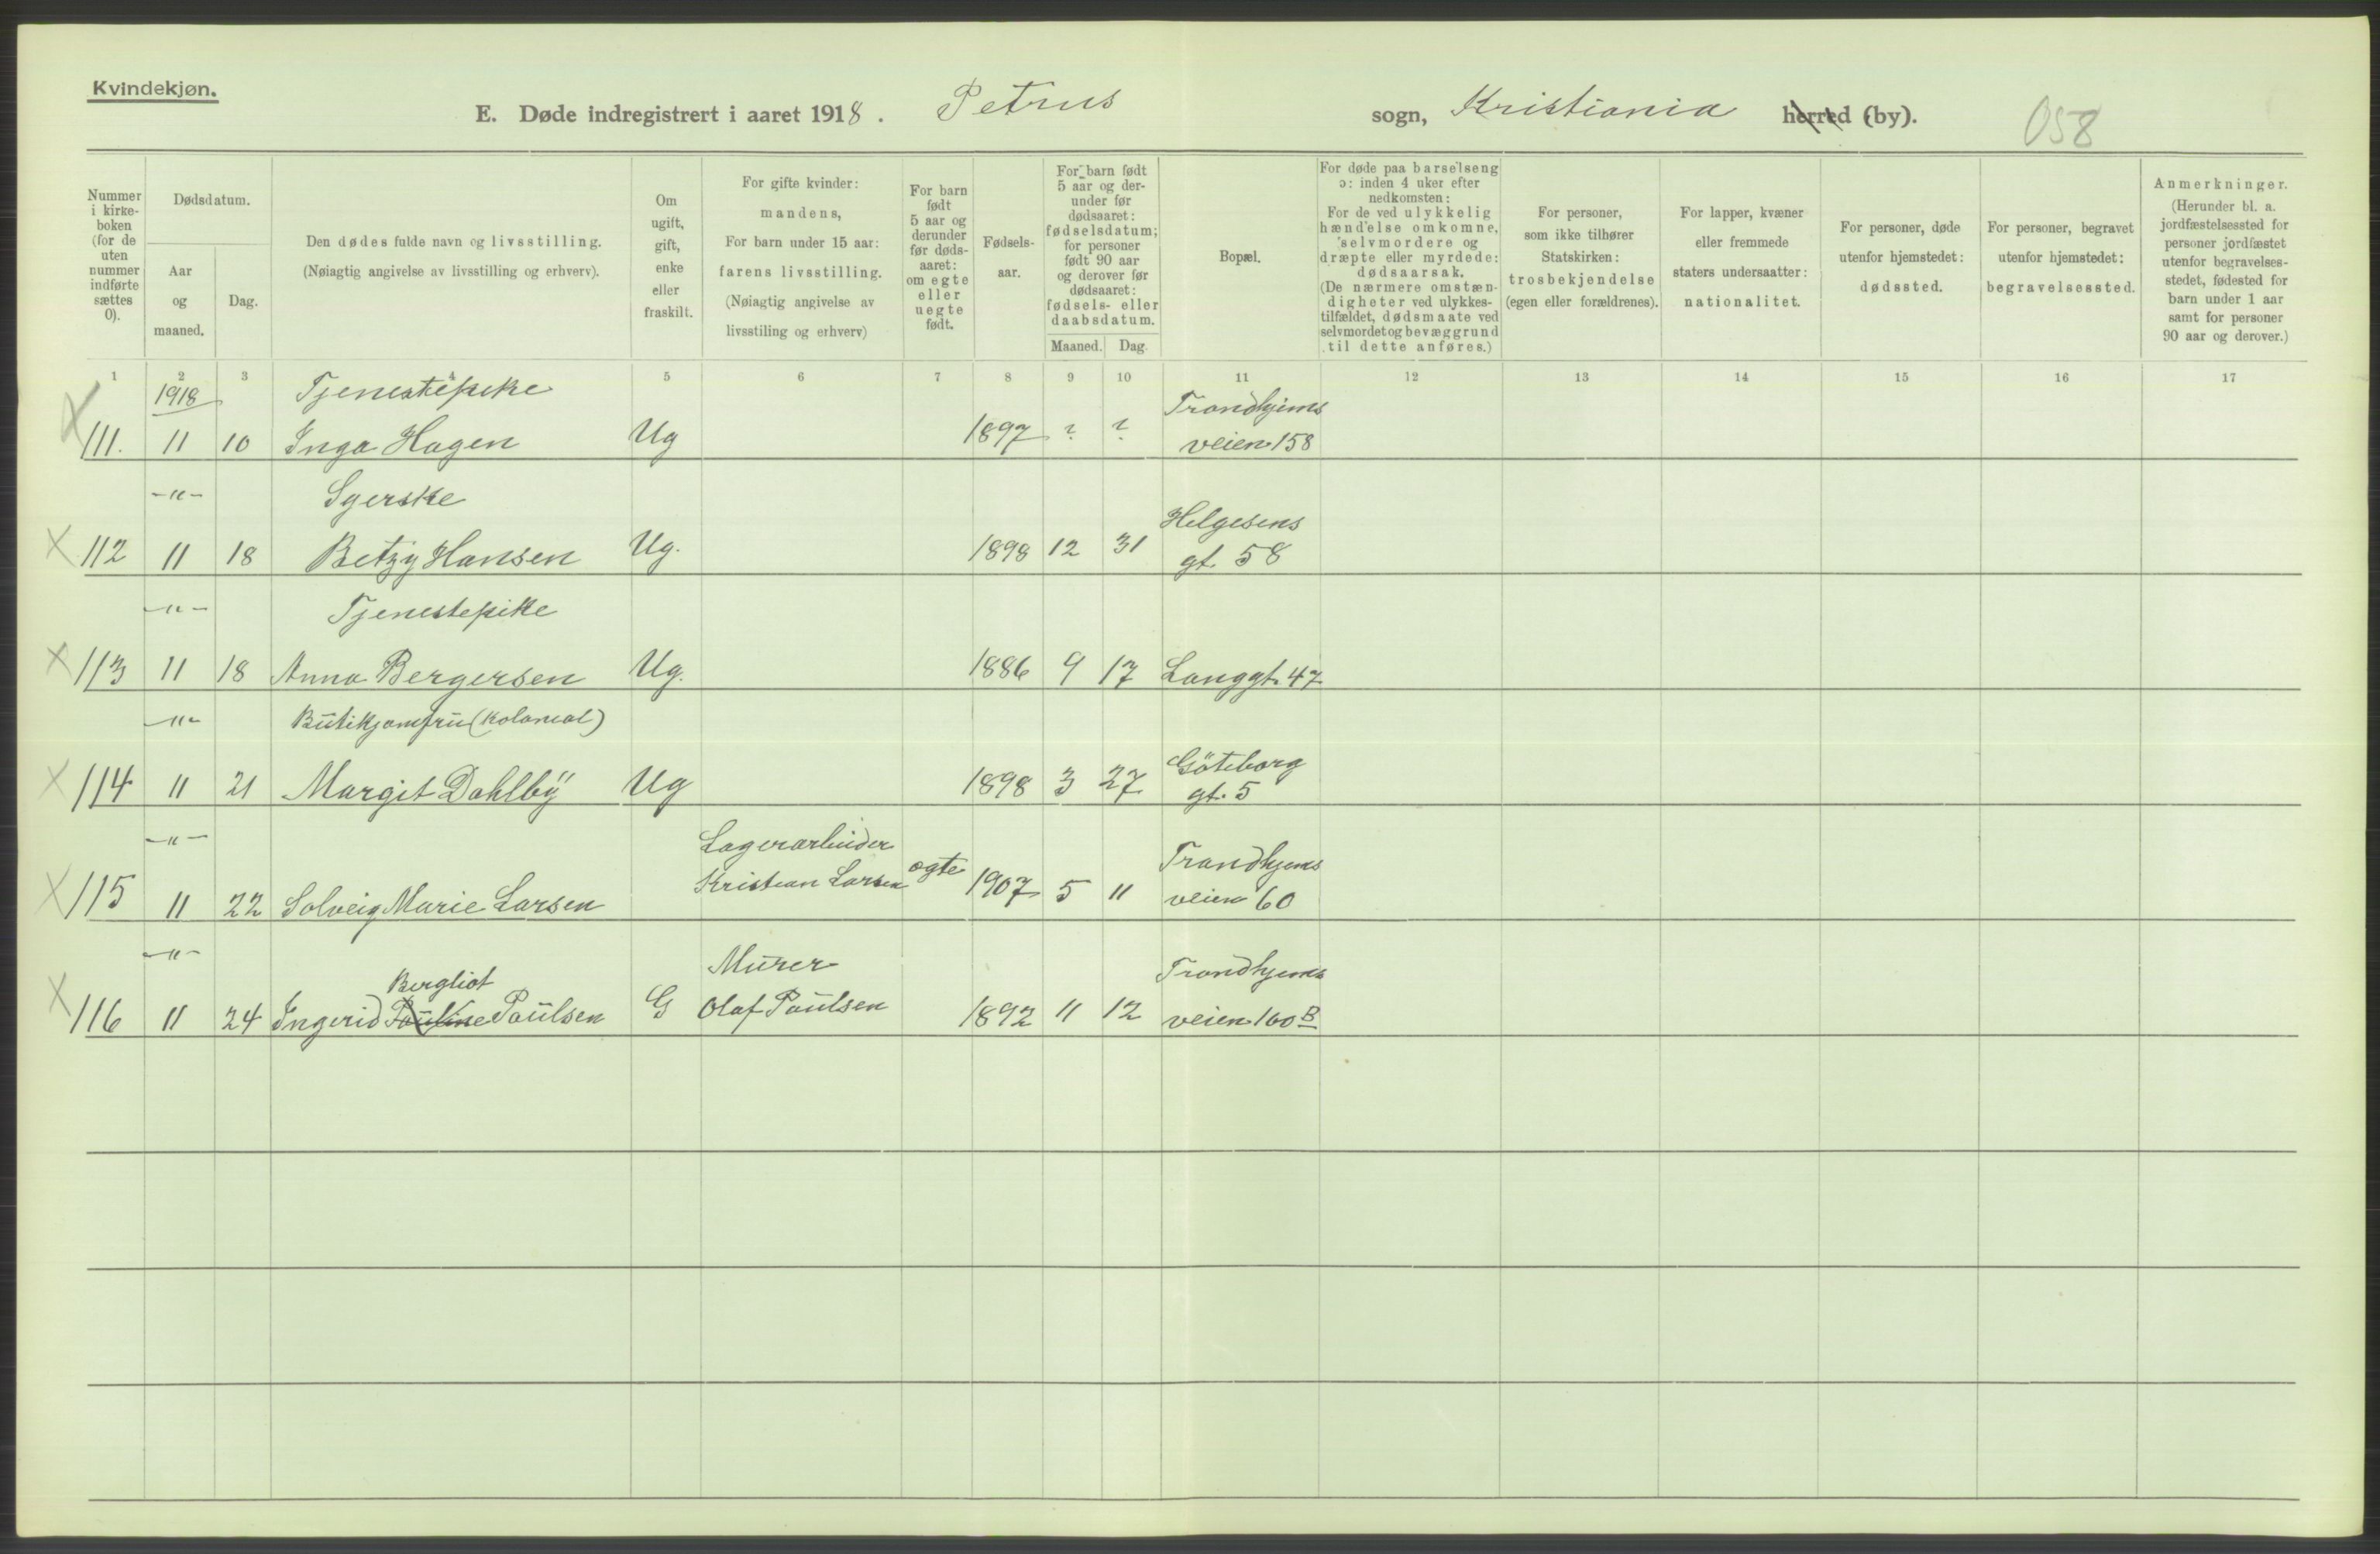 Kvindekjøn.
E. Døde indregistrert i aaret 1918. Petrus sogn, Kristiania herred (by).
058
Nummer
i kirke-
boken
(for de
uten
nummer
indførte
sættes
0).
Dødsdatum.
Aar
og
maaned.
Dag.
Den dødes fulde navn og livsstilling.
(Nøiagtig angivelse av livsstilling og erhverv).
Om
ugift,
gift,
enke
eller
fraskilt.
For gifte kvinder:
mandens,
For barn under 15 aar:
farens livsstilling.
(Nøiagtig angivelse av
livsstiling og erhverv)
For barn
født
5 aar og
derunder
før døds-
aaret:
om egte
eller
uegte
født.
Fødsels-
aar.
For barn født
5 aar og der-
under før
dødsaaret:
fødselsdatum;
for personer
født 90 aar
og derover før
dødsaaret:
fødsels- eller
daabsdatum.
Maaned. Dag.
Bopæl.
For døde paa barselseng
ɔ: inden 4 uker efter
nedkomsten:
For de ved ulykkelig
hændelse omkomne,
selvmordere og
dræpte eller myrdede:
dødsaarsak.
(De nærmere omstæn-
digheter ved ulykkes-
tilfældet, dødsmaate ved
selvmordet og bevæggrund
til dette anføres.)
For personer,
som ikke tilhører
Statskirken:
trosbekjendelse
(egen eller forældrenes).
For lapper, kvæner
eller fremmede
staters undersaatter:
nationalitet.
For personer, døde
utenfor hjemstedet:
dødssted.
For personer, begravet
utenfor hjemstedet:
begravelsessted.
Anmerkninger.
(Herunder bl. a.
jordfæstelsessted for
personer jordfæstet
utenfor begravelses-
stedet, fødested for
barn under 1 aar
samt for personer
90 aar og derover.)
1 2 3 4 5 6 7 8 9 10 11 12 13 14 15 16 17
1918 Tjenestepike Trondhjems
X 111. 11 10 Inga Hagen Ug 1897 ? ? veien 158
-"- Syerske Helgesens
X 112 11 18 Betzy Hansen Ug. 1898 12 31 gt. 58
-"- Tjenestepike
X 113 11 18 Anna Bergersen Ug. 1886 9 17 Langgt. 47
-"- Butikjomfru (Kolonial) Göteborg
X 114 11 21 Margit Dahlby Ug 1898 3 27 gt. 5
-"- Lagerarbeider Trondhjems
X 115 11 22 Solveig Marie Larsen Kristian Larsen egte 1907 5 11 veien 60
-"- Bergliot Murer Trondhjems
X 116 11 24 Ingerid Pauline Paulsen G Olaf Paulsen 1892 11 12 veien 100 B